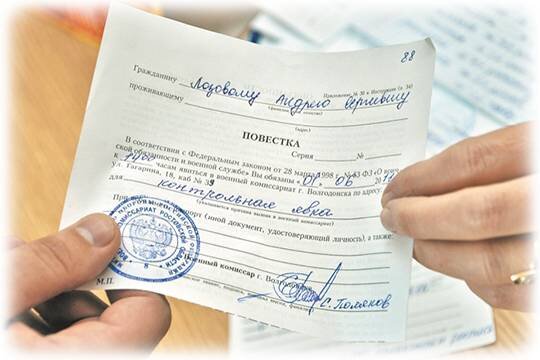 88
Приложение № 30 к Инструкции (п. 34)
Гражданину Лозовому Андрею Сергеевичу
(фамилия, имя, отчество)
проживающему
(адрес)
ПОВЕСТКА
Серия № 
В соответствии с Федеральным законом от 28 марта 1998 г. № 53-ФЗ «О воин-
ской обязанности и военной службе» Вы обязаны «01» 06
к 1400 часам явиться в военный комиссариат г. Волгодонска по адресу:
ул. Гагарина, 18, каб № 39
для контрольная явка
(указывается причина вызова в военный комиссариат)
При паспорт (иной документ, удостоверяющий личность), а также
Военный комиссар г. Волгодонск
С. Поляков
М.П.